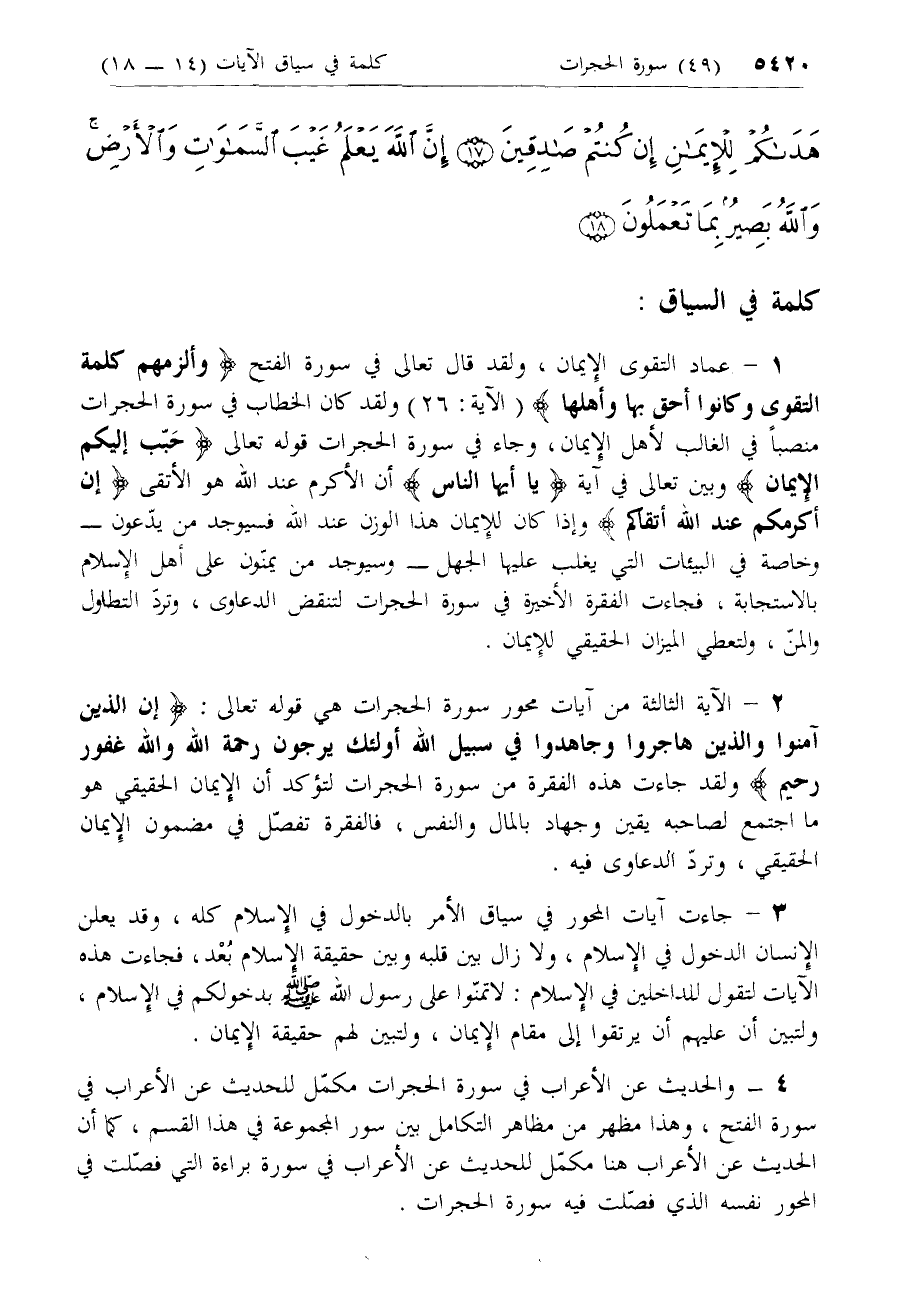 ٥٤٢٠ (٤٩) سورة الحجرات كلمة في سياق الآيات (١٤ ـ ١٨)
هَدَىٰكُمْ لِلْإِيمَٰنِ إِن كُنتُمْ صَٰدِقِينَ ﴿١٧﴾ إِنَّ ٱللَّهَ يَعْلَمُ غَيْبَ ٱلسَّمَٰوَٰتِ وَٱلْأَرْضِ ۚ
وَٱللَّهُ بَصِيرٌۢ بِمَا تَعْمَلُونَ ﴿١٨﴾
كلمة في السياق :
١ - عماد التقوى الإيمان ، ولقد قال تعالى في سورة الفتح ﴿ وألزمهم كلمة
التقوى وكانوا أحق بها وأهلها ﴾ ( الآية : ٢٦ ) ولقد كان الخطاب في سورة الحجرات
منصباً في الغالب لأهل الإيمان، وجاء في سورة الحجرات قوله تعالى ﴿ حَبّب إليكم
الإيمان ﴾ وبين تعالى في آية ﴿ يا أيها الناس ﴾ أن الأكرم عند الله هو الأتقى ﴿ إن
أكرمكم عند الله أتقاكم ﴾ وإذا كان للإيمان هذا الوزن عند الله فسيوجد من يدّعون ـ
وخاصة في البيئات التي يغلب عليها الجهل ـ وسيوجد من يمنّون على أهل الإسلام
بالاستجابة ، فجاءت الفقرة الأخيرة في سورة الحجرات لتنقض الدعاوى ، وتردّ التطاول
والمنّ ، ولتعطي الميزان الحقيقي للإيمان .
٢ - الآية الثالثة من آيات محور سورة الحجرات هي قوله تعالى : ﴿ إن الذين
آمنوا والذين هاجروا وجاهدوا في سبيل الله أولئك يرجون رحمة الله والله غفور
رحيم ﴾ ولقد جاءت هذه الفقرة من سورة الحجرات لتؤكد أن الإيمان الحقيقي هو
ما اجتمع لصاحبه يقين وجهاد بالمال والنفس ، فالفقرة تفصّل في مضمون الإيمان
الحقيقي ، وتردّ الدعاوى فيه .
٣ - جاءت آيات المحور في سياق الأمر بالدخول في الإسلام كله ، وقد يعلن
الإنسان الدخول في الإسلام ، ولا زال بين قلبه وبين حقيقة الإسلام بُعْد، فجاءت هذه
الآيات لتقول للداخلين في الإسلام : لاتمنّوا على رسول الله ﷺ بدخولكم في الإسلام ،
ولتبين أن عليهم أن يرتقوا إلى مقام الإيمان ، ولتبين لهم حقيقة الإيمان .
٤ ـ والحديث عن الأعراب في سورة الحجرات مكمّل للحديث عن الأعراب في
سورة الفتح ، وهذا مظهر من مظاهر التكامل بين سور المجموعة في هذا القسم ، كما أن
الحديث عن الأعراب هنا مكمّل للحديث عن الأعراب في سورة براءة التي فصّلت في
المحور نفسه الذي فصّلت فيه سورة الحجرات .